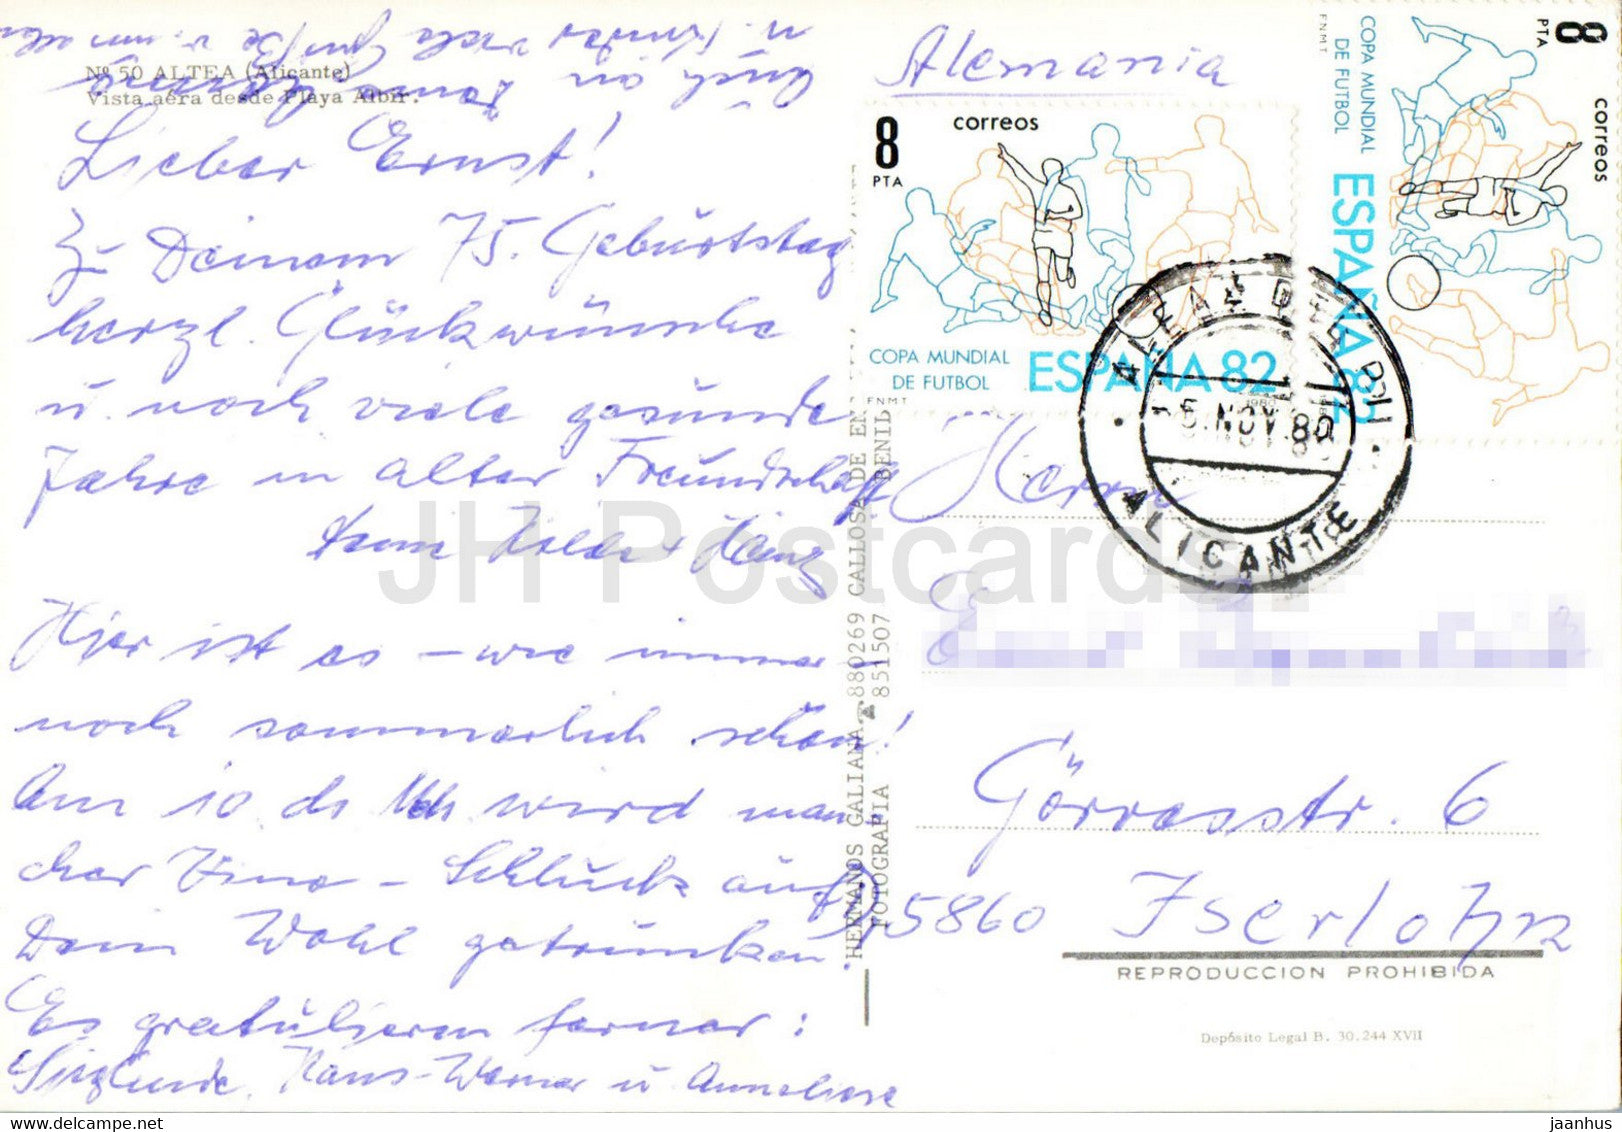 Nº 50 ALTEA (Alicante)
Vista aéra desde Playa Albir.
Auch an
Lieber Ernst!
Zu Deinem 75. Geburtstag
herzl. Glückwünsche
u. noch viele gesunde
Jahre in alter Freundschaft
Heinz
Hier ist es – wie immer –
noch sommerlich schön!
Am 10. ds. Mts. wird man
cher Vino – Schluck auf
Dein Wohl getrunken.
Es gratulieren ferner:
Sieglinde, Hans-Werner u. Anneliese
HERMANOS GALIANA 880269 CALLOSA DE EN
FOTOGRAFIA 851507 BENID
Alemania
8
PTA
correos
COPA MUNDIAL
DE FUTBOL
ESPAÑA 82
FNMT
1980
8
PTA
correos
COPA MUNDIAL
DE FUTBOL
ESPAÑA 82
FNMT
NOV. 80
ALICANTE
Herrn
Görresstr. 6
D 5860 Iserlohn
REPRODUCCION PROHIBIDA
Depósito Legal B. 30.244 XVII
JH Postcards
jaanhus